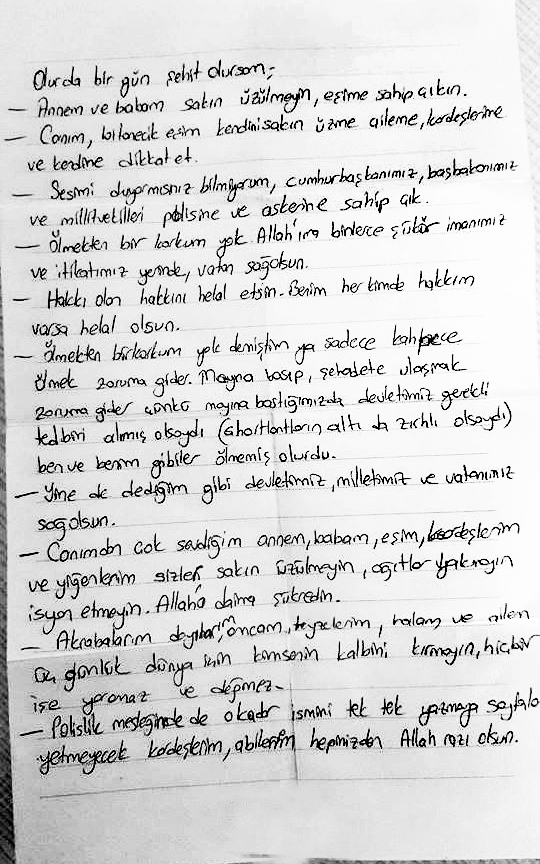 Olurda bir gün şehit olursam;
— Annem ve babam sakın üzülmeyin, eşime sahip çıkın.
— Canım, bitanecik eşim kendini sakın üzme aileme, kardeşlerime
ve kendine dikkat et.
— Sesimi duyarmısınız bilmiyorum, cumhurbaşkanımız, başbakanımız
ve milletvekilleri polisine ve askerine sahip çık.
— Ölmekten bir korkum yok. Allah'ıma binlerce şükür imanımız
ve itikatımız yerinde, vatan sağolsun.
— Hakkı olan hakkını helal etsin. Benim her kimde hakkım
varsa helal olsun.
— Ölmekten bir korkum yok demiştim ya sadece kahpece
ölmek zoruma gider. Mayna basıp, şehadete ulaşmak
zoruma gider çünkü mayına bastığımızda devletimiz gerekli
tedbiri almış olsaydı (shortlantların altı da zırhlı olsaydı)
ben ve benim gibiler ölmemiş olurdu.
— Yine de dediğim gibi devletimiz, milletimiz ve vatanımız
sağolsun.
— Canımdan çok sevdiğim annem, babam, eşim, kardeşlerim
ve yiğenlerim sizler sakın üzülmeyin, ağıtlar yakmayın
isyan etmeyin. Allah'a daima şükredin.
— Akrabalarım dayılarım, amcam, teyzelerim, halam ve ailem
üç günlük dünya için kimsenin kalbini kırmayın, hiçbir
işe yaramaz ve değmez.
— Polislik mesleğinde de o kadar ismini tek tek yazmaya sayfala
yetmeyecek kardeşlerim, abilerim hepinizden Allah razı olsun.